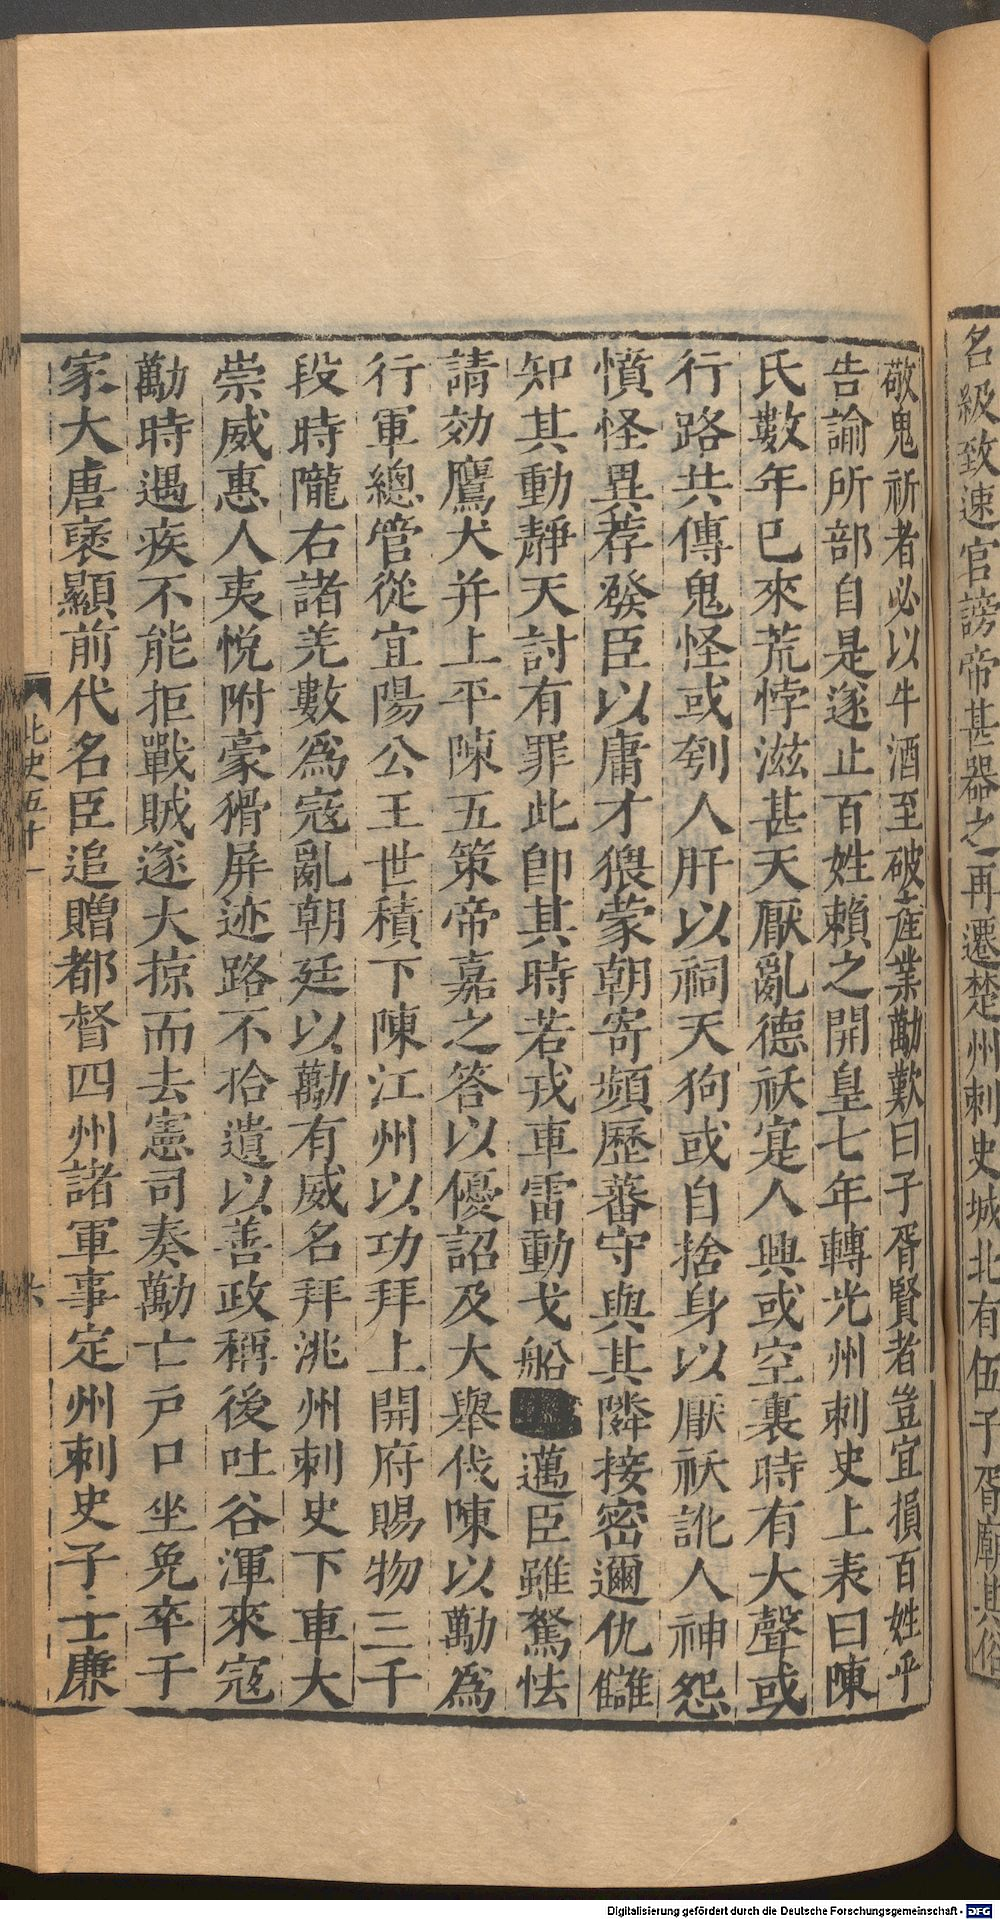 名級致速官謗帝甚器之再遷楚州刺史城北有伍子胥廟其俗
敬鬼祈者必以牛酒至破產業勱歎曰子胥賢者豈宜損百姓乎
告諭所部自是遂止百姓賴之開皇七年轉光州刺史上表曰陳
氏數年已來荒悖滋甚天厭亂德祅寔人興或空裏時有大聲或
行路共傳鬼怪或刳人肝以祠天狗或自捨身以厭祅訛人神怨
憤怪異荐發臣以庸才猥蒙朝寄頻歷蕃守與其隣接密邇仇讎
知其動靜天討有罪此卽其時若戎車雷動戈船邁臣雖駑怯
請効鷹犬并上平陳五策帝嘉之答以優詔及大舉伐陳以勱爲
行軍總管從宜陽公王世積下陳江州以功拜上開府賜物三千
段時隴右諸羌數爲寇亂朝廷以勱有威名拜洮州刺史下車大
崇威惠人夷悅附豪猾屏迹路不拾遺以善政稱後吐谷渾來寇
勱時遇疾不能拒戰賊遂大掠而去憲司奏勱亡戶口坐免卒于
家大唐褒顯前代名臣追贈都督四州諸軍事定州刺史子士廉
北史五十一
六
Digitalisierung gefördert durch die Deutsche Forschungsgemeinschaft - DFG